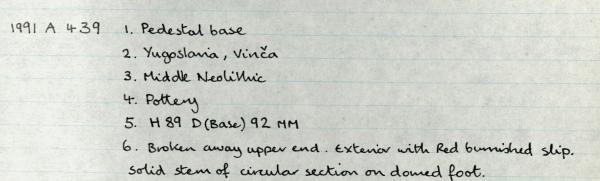 1991 A 439 1. Pedestal base
2. Yugoslavia, Vinča
3. Middle Neolithic
4. Pottery
5. H 89 D (Base) 92 MM
6. Broken away upper end. Exterior with Red burnished slip.
Solid stem of circular section on domed foot.